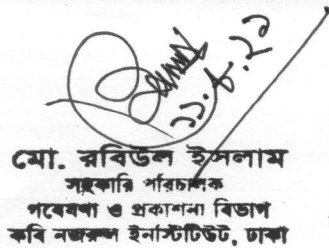 ১১.৮.২১
মো. রবিউল ইসলাম
সহকারি পরিচালক
গবেষণা ও প্রকাশনা বিভাগ
কবি নজরুল ইনস্টিটিউট, ঢাকা